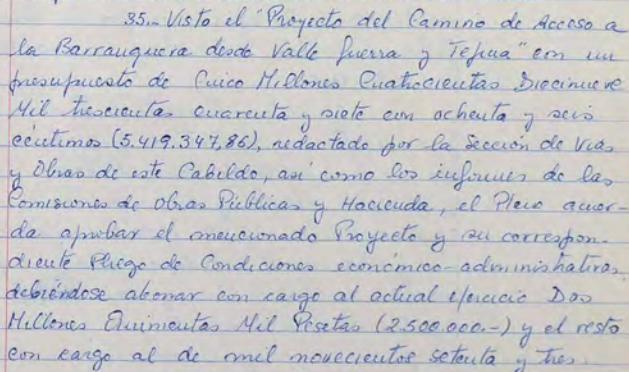 35.- Visto el "Proyecto del Camino de Acceso a
la Barranquera desde Valle Guerra y Tejina" con un
presupuesto de Cinco Millones Cuatrocientas Diecinueve
Mil trescientas cuarenta y siete con ochenta y seis
céntimos (5.419.347,86), redactado por la Sección de Vías
y Obras de este Cabildo, así como los informes de las
Comisiones de Obras Públicas y Hacienda, el Pleno acuer-
da aprobar el mencionado Proyecto y su correspon-
diente Pliego de Condiciones económico-administrativas,
debiéndose abonar con cargo al actual ejercicio Dos
Millones Quinientas Mil Pesetas (2.500.000.-) y el resto
con cargo al de mil novecientos setenta y tres.